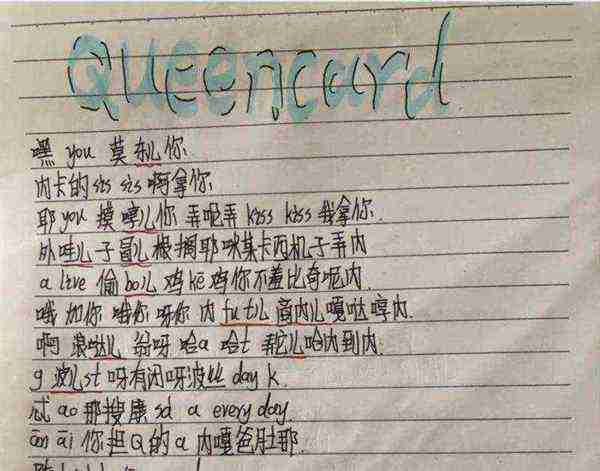 Queencard
嘿 you 莫 your儿 你
内卡的 sis sis 啊拿你
耶 you 摸 哼儿 你 弄呢弄 kiss kiss 我拿你
外哇儿子冒儿 根搁耶咪某卡西机子弄内
a live 偷 bo儿 鸡 ke 鸡你不羞比奇呢内
哦 加你 哦你 呀你 内 fu t儿 高内儿嘎哒哼内.
啊 浪哒儿 纷呀 哈 a 哈 t 弄儿哈内到内
g 波儿 st 呀有闭呀波 day k.
忒 ao 那搜康 sd a every day
ān āi 你担 Q 的 a 内嘎爸肚那.